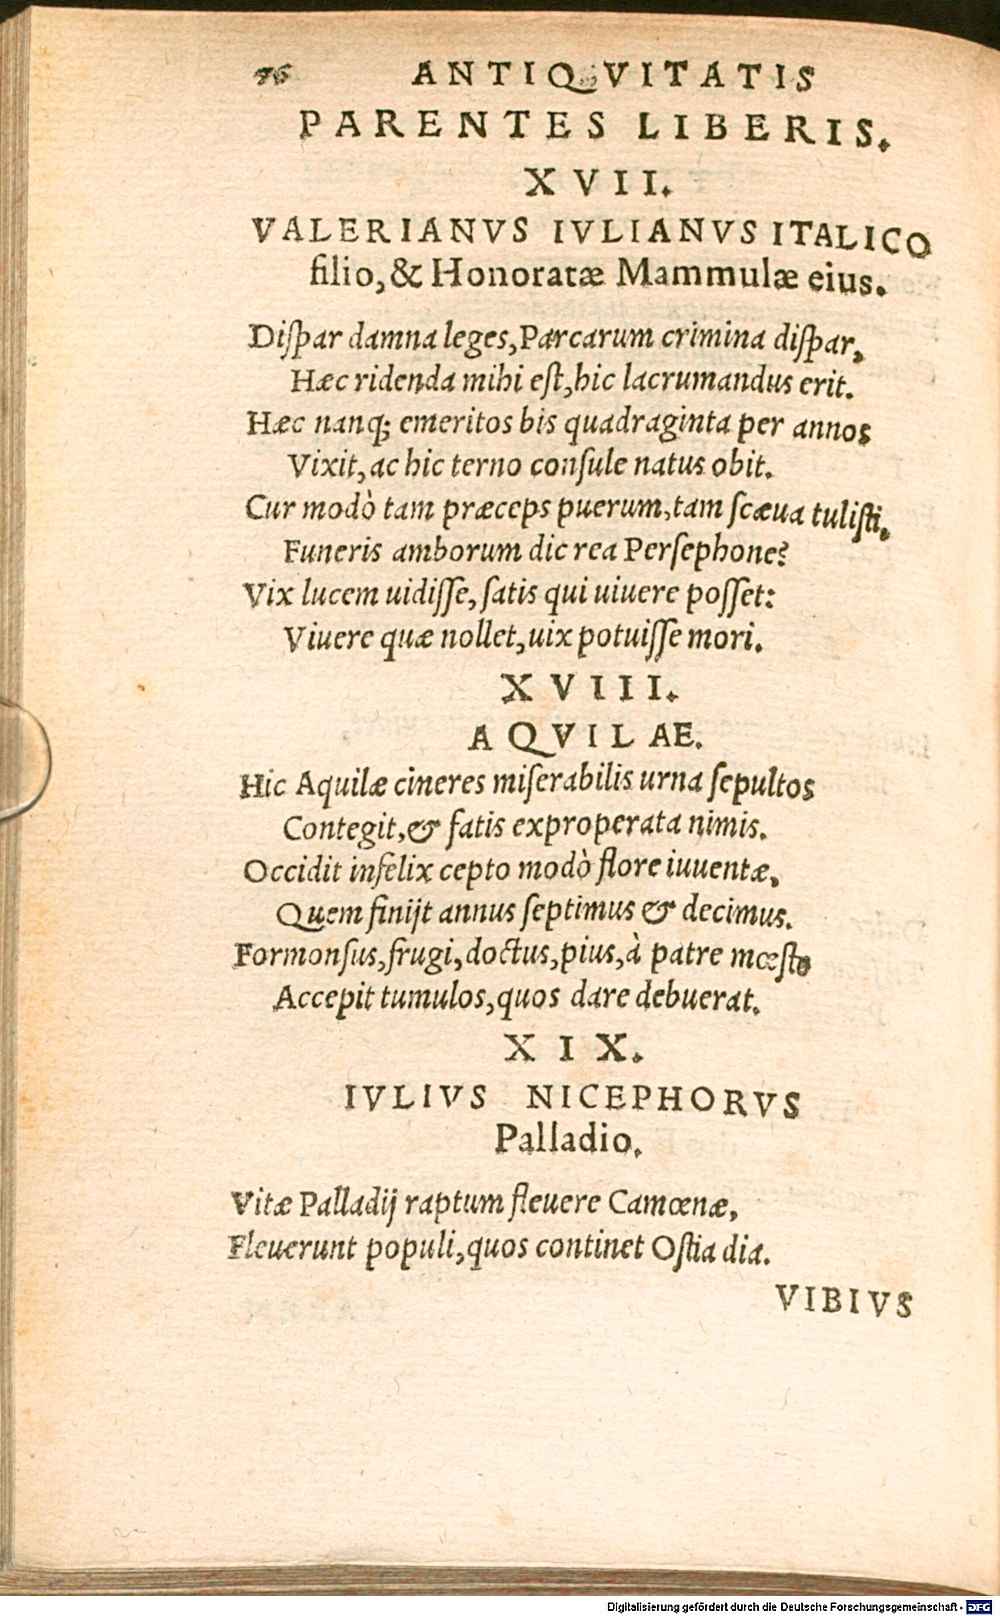 76 ANTIQVITATIS
PARENTES LIBERIS.
XVII.
VALERIANVS IVLIANVS ITALICO
filio, & Honoratæ Mammulæ eius.
Diſpar damna leges, Parcarum crimina diſpar,
Hæc ridenda mihi eſt, hic lacrumandus erit.
Hæc nanq; emeritos bis quadraginta per annos
Vixit, ac hic terno conſule natus obit.
Cur modò tam præceps puerum, tam ſcæua tuliſti,
Funeris amborum dic rea Perſephone?
Vix lucem uidiſſe, ſatis qui uiuere poſſet:
Viuere quæ nollet, uix potuiſſe mori.
XVIII.
AQVILAE.
Hic Aquilæ cineres miſerabilis urna ſepultos
Contegit, & fatis exproperata nimis.
Occidit infelix cepto modò flore iuuentæ,
Quem finijt annus ſeptimus & decimus.
Formonſus, frugi, doctus, pius, à patre mœſto
Accepit tumulos, quos dare debuerat.
XIX.
IVLIVS NICEPHORVS
Palladio.
Vitæ Palladij raptum fleuere Camœnæ,
Fleuerunt populi, quos continet Oſtia dia.
VIBIVS
Digitalisierung gefördert durch die Deutsche Forschungsgemeinschaft - DFG